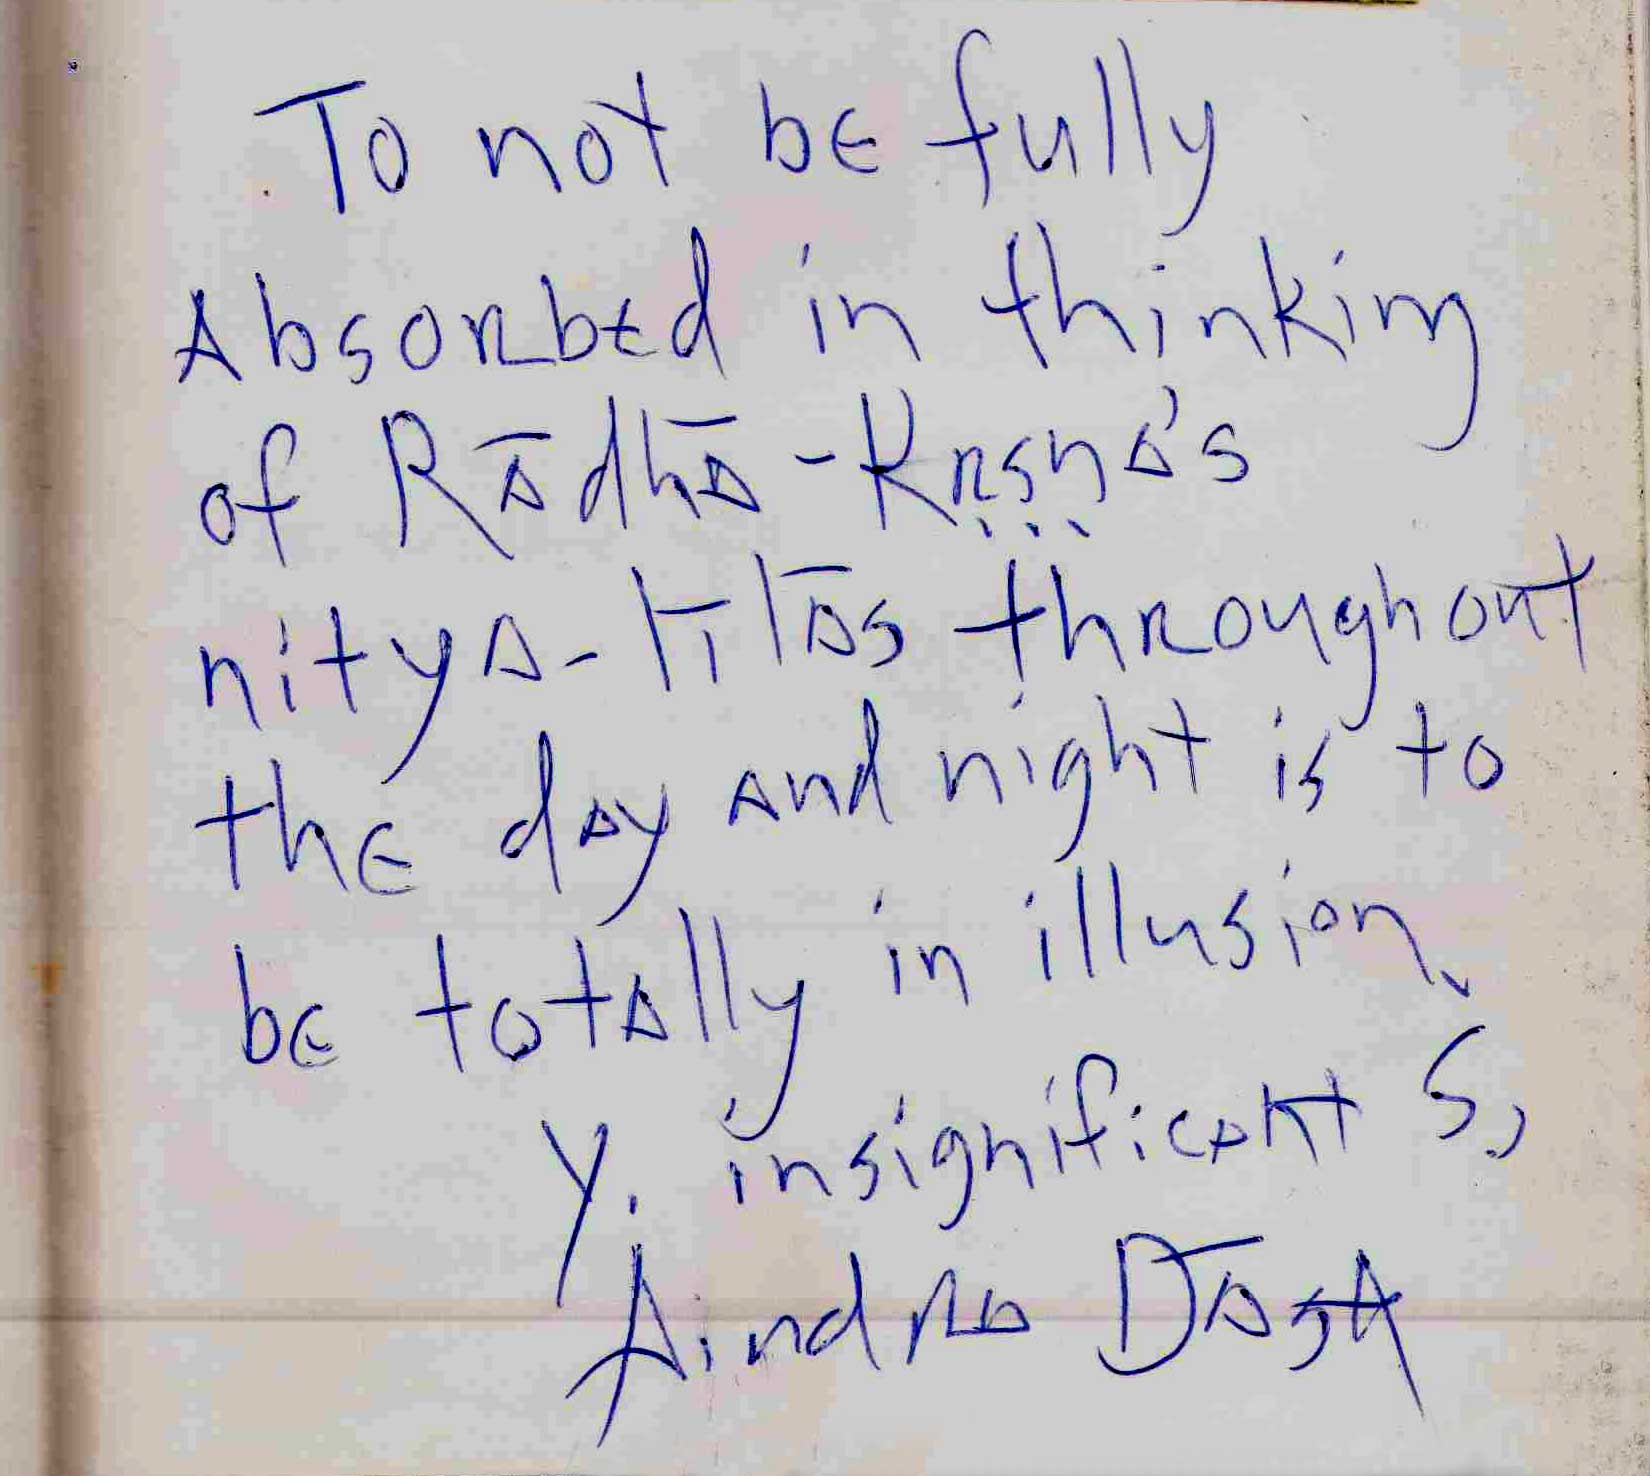 To not be fully
Absorbed in thinking
of Rādhā-Kṛṣṇa's
nitya-līlās throughout
the day and night is to
be totally in illusion.
Y. insignificant S.,
Aindra Dāsa